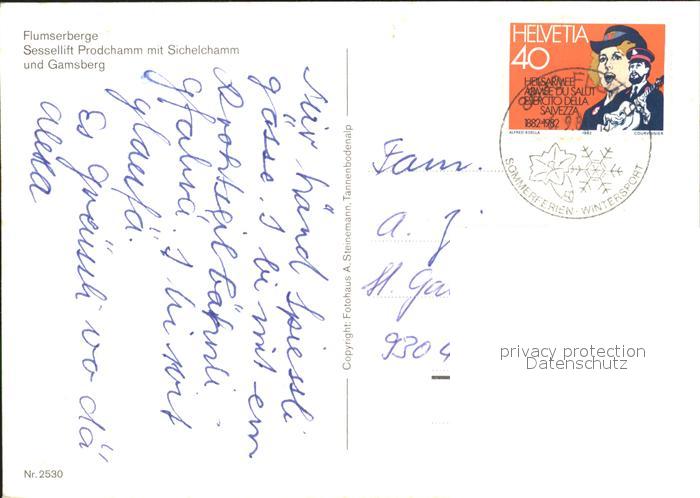 Flumserberge
Sessellift Prodchamm mit Sichelchamm
und Gamsberg
Mir händ Spiessli
gässe. I bi mit em
gfahrä. I bi wit
glaufä.
Es Grüessli vo dä
Copyright: Fotohaus A. Steinemann, Tannenbodenalp
Nr. 2530
HELVETIA
40
HEILSARMEE
ARMÉE DU SALUT
ESERCITO DELLA
SALVEZZA
1882-1982
ALFRED KOELLA 1982 COURVOISIER
SOMMERFERIEN - WINTERSPORT
Fam.
A.
St. Ga
9304
privacy protection
Datenschutz